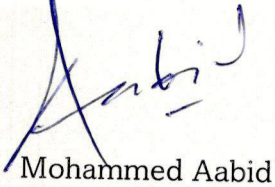 Aabid
Mohammed Aabid